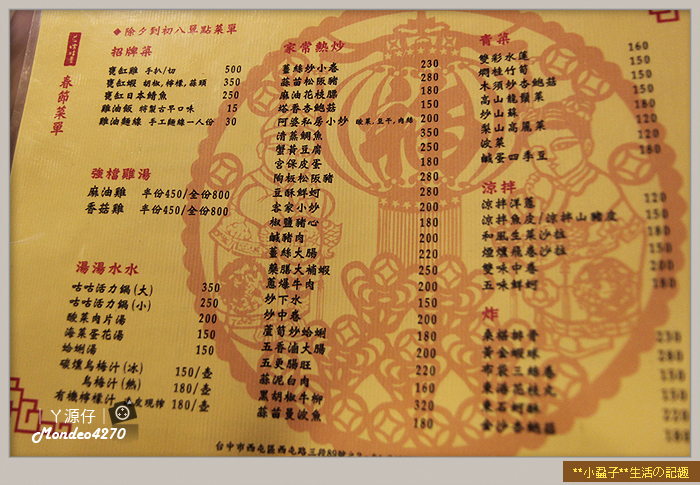 春節菜單
◆除夕到初八單點菜單
招牌菜
甕缸雞 手扒/切 500
甕缸蝦 胡椒,檸檬,蒜頭 350
甕缸日本鯖魚 250
雞油飯 特製古早口味 15
雞油麵線 手工麵線一人份 30
強檔雞湯
麻油雞 半份450/全份800
香菇雞 半份450/全份800
湯湯水水
咕咕活力鍋(大) 350
咕咕活力鍋(小) 250
酸菜肉片湯 200
海菜蛋花湯 150
蛤蜊湯 150
碳燻烏梅汁(冰) 150/壺
烏梅汁(熱) 180/壺
有機檸檬汁 180/壺
家常熱炒
薑絲炒小卷 230
蒜苗松阪豬 280
麻油花枝腰 180
塔香杏鮑菇 180
阿婆私房小炒 酸菜,豆干,肉絲 200
清蒸鯛魚 350
蟹黃豆腐 250
宮保皮蛋 180
陶板松阪豬 280
豆酥鮮蚵 280
客家小炒 200
椒鹽豬心 180
鹹豬肉 200
薑絲大腸 220
藥膳大補蝦 250
蔥爆牛肉 200
炒下水 150
炒中卷 200
蘆筍炒蛤蜊 180
五香滷大腸 200
五更腸旺 220
蒜泥白肉 160
黑胡椒牛柳 320
蒜苗曼波魚 180
青菜
雙彩水蓮 160
燜桂竹筍 150
木須炒杏鮑菇 150
高山龍鬚菜 150
炒山蘇 150
梨山高麗菜 120
菠菜 120
鹹蛋四季豆 180
涼拌
涼拌洋蔥 120
涼拌魚皮/涼拌山豬皮 150
和風生菜沙拉 150
煙燻飛卷沙拉 150
雙味中卷 200
五味鮮蚵 180
炸
桑椹排骨
黃金蝦球
布袋三絲卷
東港花枝丸
東石蚵酥
金沙杏鮑菇
台中市西屯區西屯路三段89號之
ㄚ源仔
Mondeo4270
**小蝨子**生活の記趣